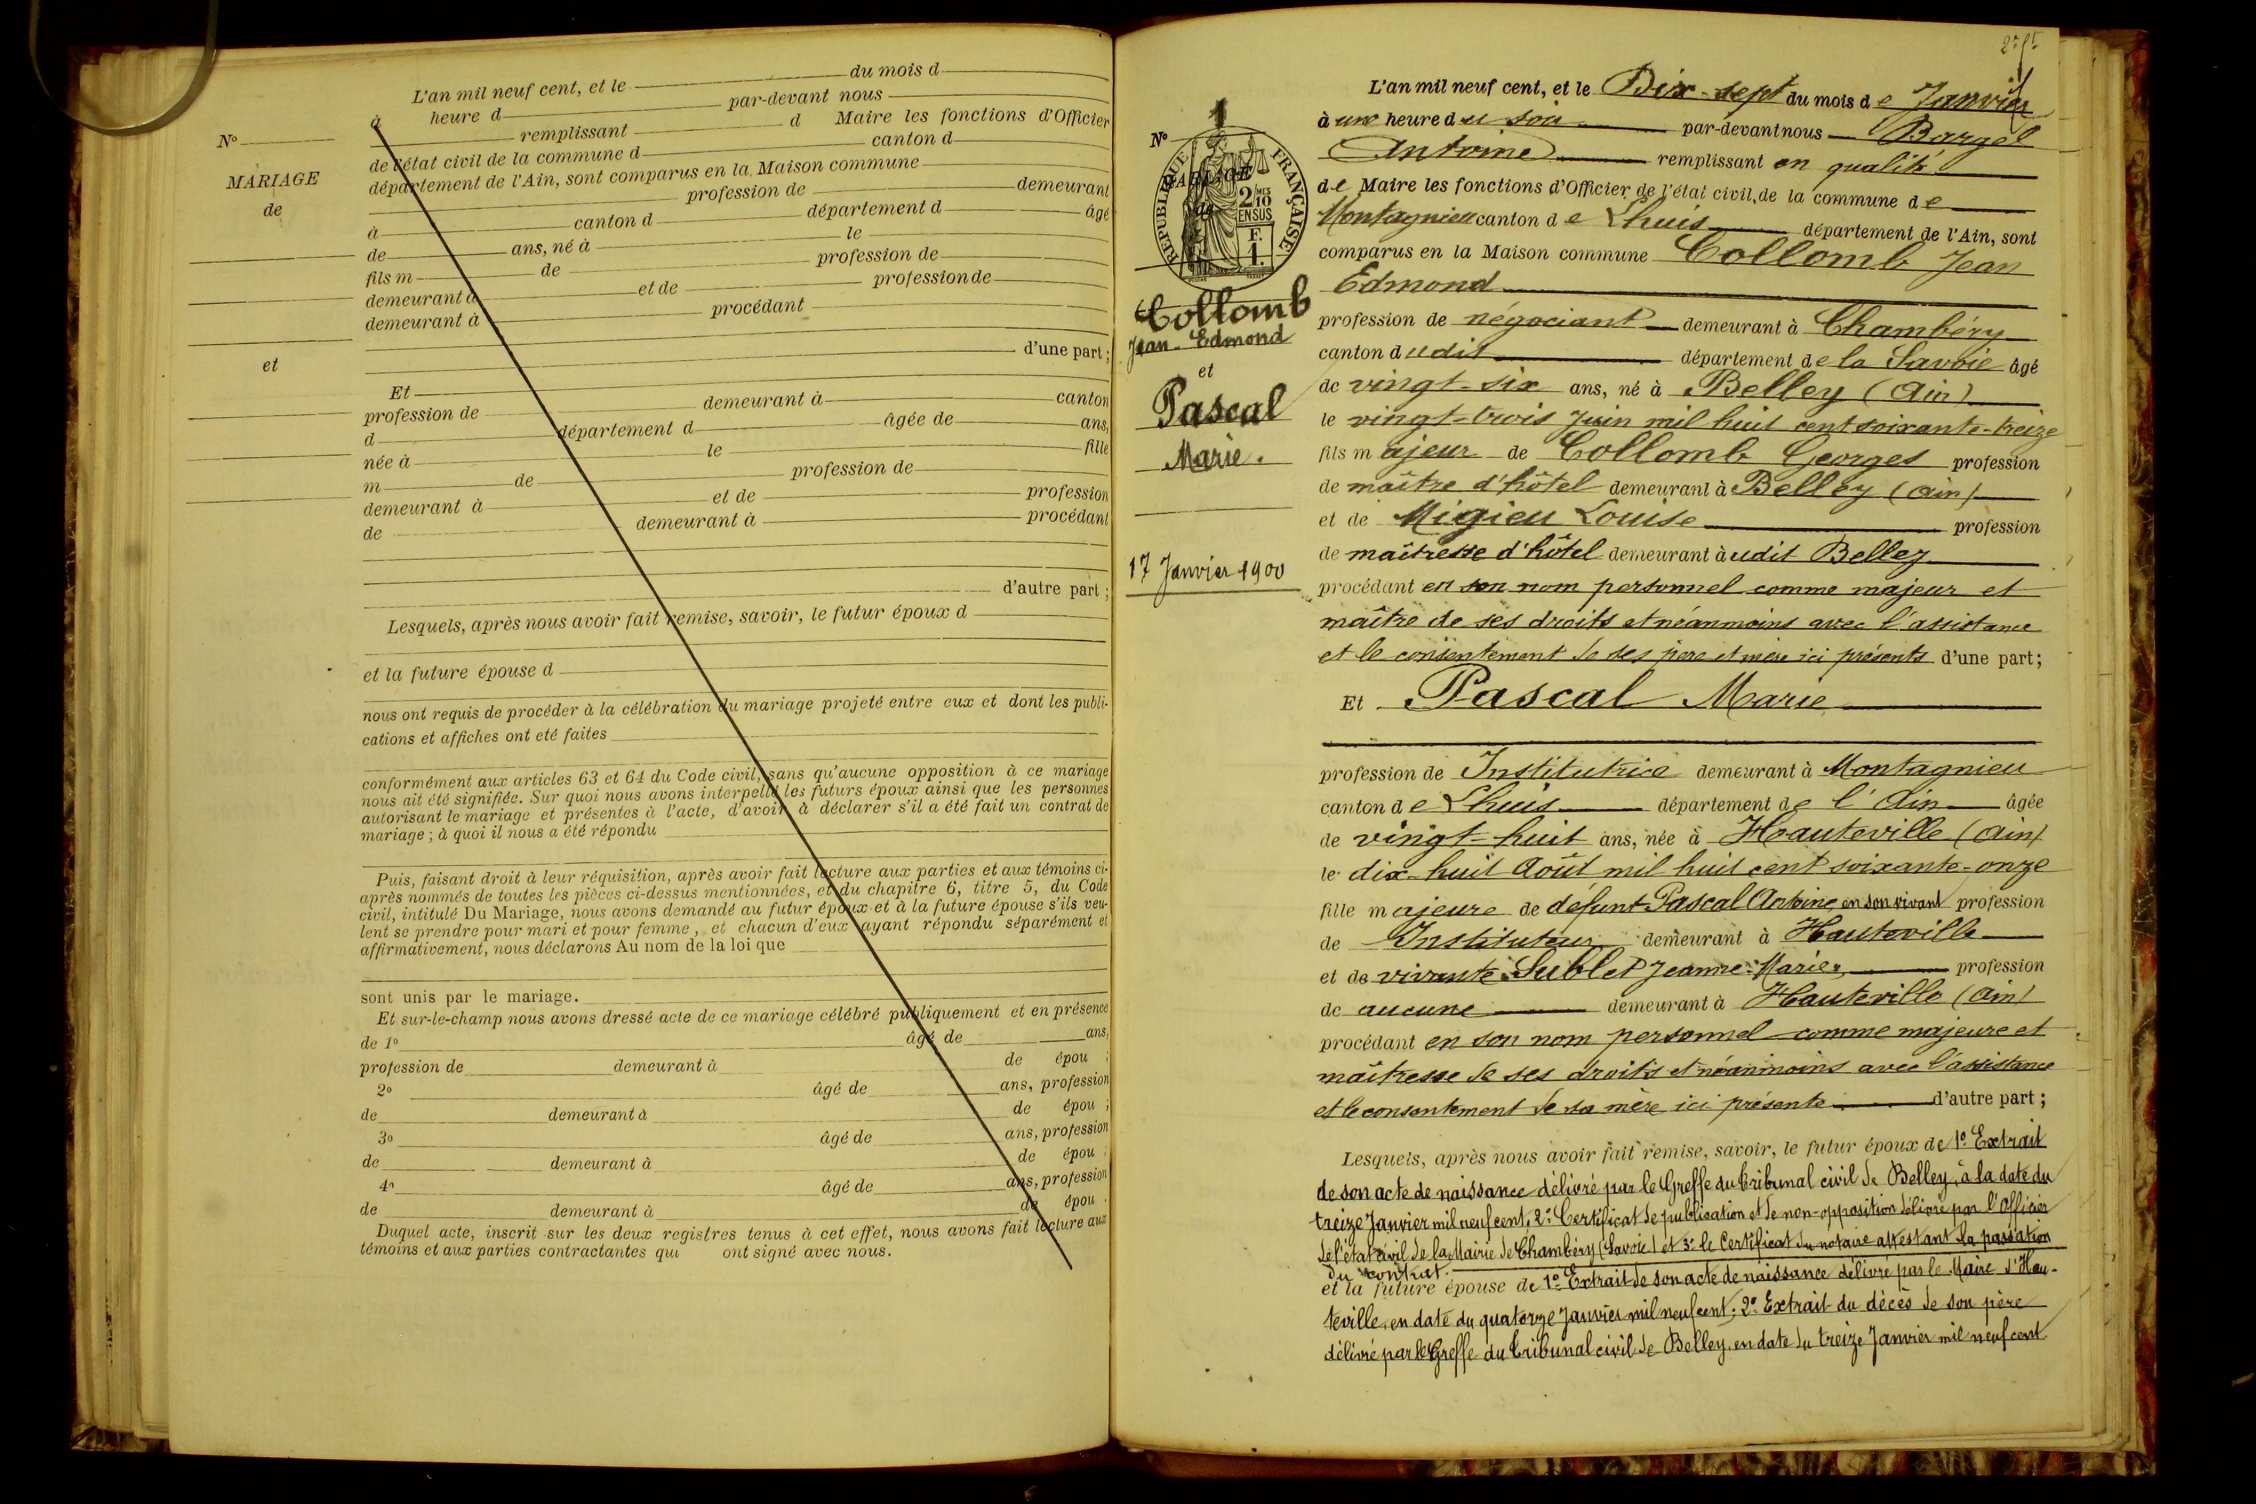 L'an mil neuf cent, et le du mois d
à heure d par-devant nous
remplissant d Maire les fonctions d'Officier
de l'état civil de la commune d canton d
département de l'Ain, sont comparus en la Maison commune
profession de demeurant
à canton d département d âgé
de ans, né à le
fils m de profession de
demeurant à et de profession de
demeurant à procédant
d'une part ;
Et
profession de demeurant à canton
d département d âgée de ans,
née à le fille
m de profession de
demeurant à et de profession
de demeurant à procédant
d'autre part ;
Lesquels, après nous avoir fait remise, savoir, le futur époux d
et la future épouse d
nous ont requis de procéder à la célébration du mariage projeté entre eux et dont les publi-
cations et affiches ont eté faites
conformément aux articles 63 et 64 du Code civil, sans qu'aucune opposition à ce mariage
nous ait été signifiée. Sur quoi nous avons interpellé les futurs époux ainsi que les personnes
autorisant le mariage et présentes à l'acte, d'avoir à déclarer s'il a été fait un contrat de
mariage ; à quoi il nous a été répondu
Puis, faisant droit à leur réquisition, après avoir fait lecture aux parties et aux témoins ci-
après nommés de toutes les pièces ci-dessus mentionnées, et du chapitre 6, titre 5, du Code
civil, intitulé Du Mariage, nous avons demandé au futur époux et à la future épouse s'ils veu-
lent se prendre pour mari et pour femme, et chacun d'eux ayant répondu séparément et
affirmativement, nous déclarons Au nom de la loi que
sont unis par le mariage.
Et sur-le-champ nous avons dressé acte de ce mariage célébré publiquement et en présence
de 1º âgé de ans,
profession de demeurant à de épou ;
2º âgé de ans, profession
de demeurant à de épou ;
3º âgé de ans, profession
de demeurant à de épou ;
4º âgé de ans, profession
de demeurant à de épou .
Duquel acte, inscrit sur les deux registres tenus à cet effet, nous avons fait lecture aux
témoins et aux parties contractantes qui ont signé avec nous.
Nº
MARIAGE
de
et
Nº 1
RÉPUBLIQUE FRANÇAISE
MARIAGE
de
2/10 MES
EN SUS
F.
1.
Collomb
Jean-Edmond
et
Pascal
Marie.
17 Janvier 1900
L'an mil neuf cent, et le Dix-sept du mois de Janvier
à une heure du soir par-devant nous
Antoine remplissant en qualité
de Maire les fonctions d'Officier de l'état civil, de la commune de
Montagnieu canton de Lhuis département de l'Ain, sont
comparus en la Maison commune Collomb Jean
Edmond
profession de négociant demeurant à Chambéry
canton dudit département de la Savoie âgé
de vingt-six ans, né à Belley (Ain)
le vingt-trois Juin mil huit cent soixante-treize
fils majeur de Collomb Georges profession
de maître d'hôtel demeurant à Belley (Ain)
et de Migieu Louise profession
de maîtresse d'hôtel demeurant àudit Belley
procédant en son nom personnel comme majeur et
maître de ses droits et néanmoins avec l'assistance
et le consentement de ses père et mère ici présents d'une part ;
Et Pascal Marie
profession de Institutrice demeurant à Montagnieu
canton de Lhuis département de l'Ain âgée
de vingt-huit ans, née à Hauteville (Ain)
le dix-huit Août mil huit cent soixante-onze
fille majeure de défunt Pascal Antoine en son vivant profession
de Instituteur demeurant à Hauteville
et de vivante Sublet Jeanne-Marie, profession
de aucune demeurant à Hauteville (Ain)
procédant en son nom personnel comme majeure et
maîtresse de ses droits et néanmoins avec l'assistance
et le consentement de sa mère ici présente d'autre part ;
Lesquels, après nous avoir fait remise, savoir, le futur époux de 1º Extrait
de son acte de naissance délivré par le Greffe du Tribunal civil de Belley, à la date du
treize Janvier mil neuf cent; 2º Certificat de publication et de non-opposition délivré par l'Officier
de l'état civil de la Mairie de Chambéry (Savoie) et 3º le Certificat du notaire attestant la passation
du contrat.
et la future épouse de 1º Extrait de son acte de naissance délivré par le Maire d'Hau-
teville, en date du quatorze Janvier mil neuf cent; 2º Extrait du décès de son père
délivré par le Greffe du Tribunal civil de Belley, en date du treize Janvier mil neuf cent